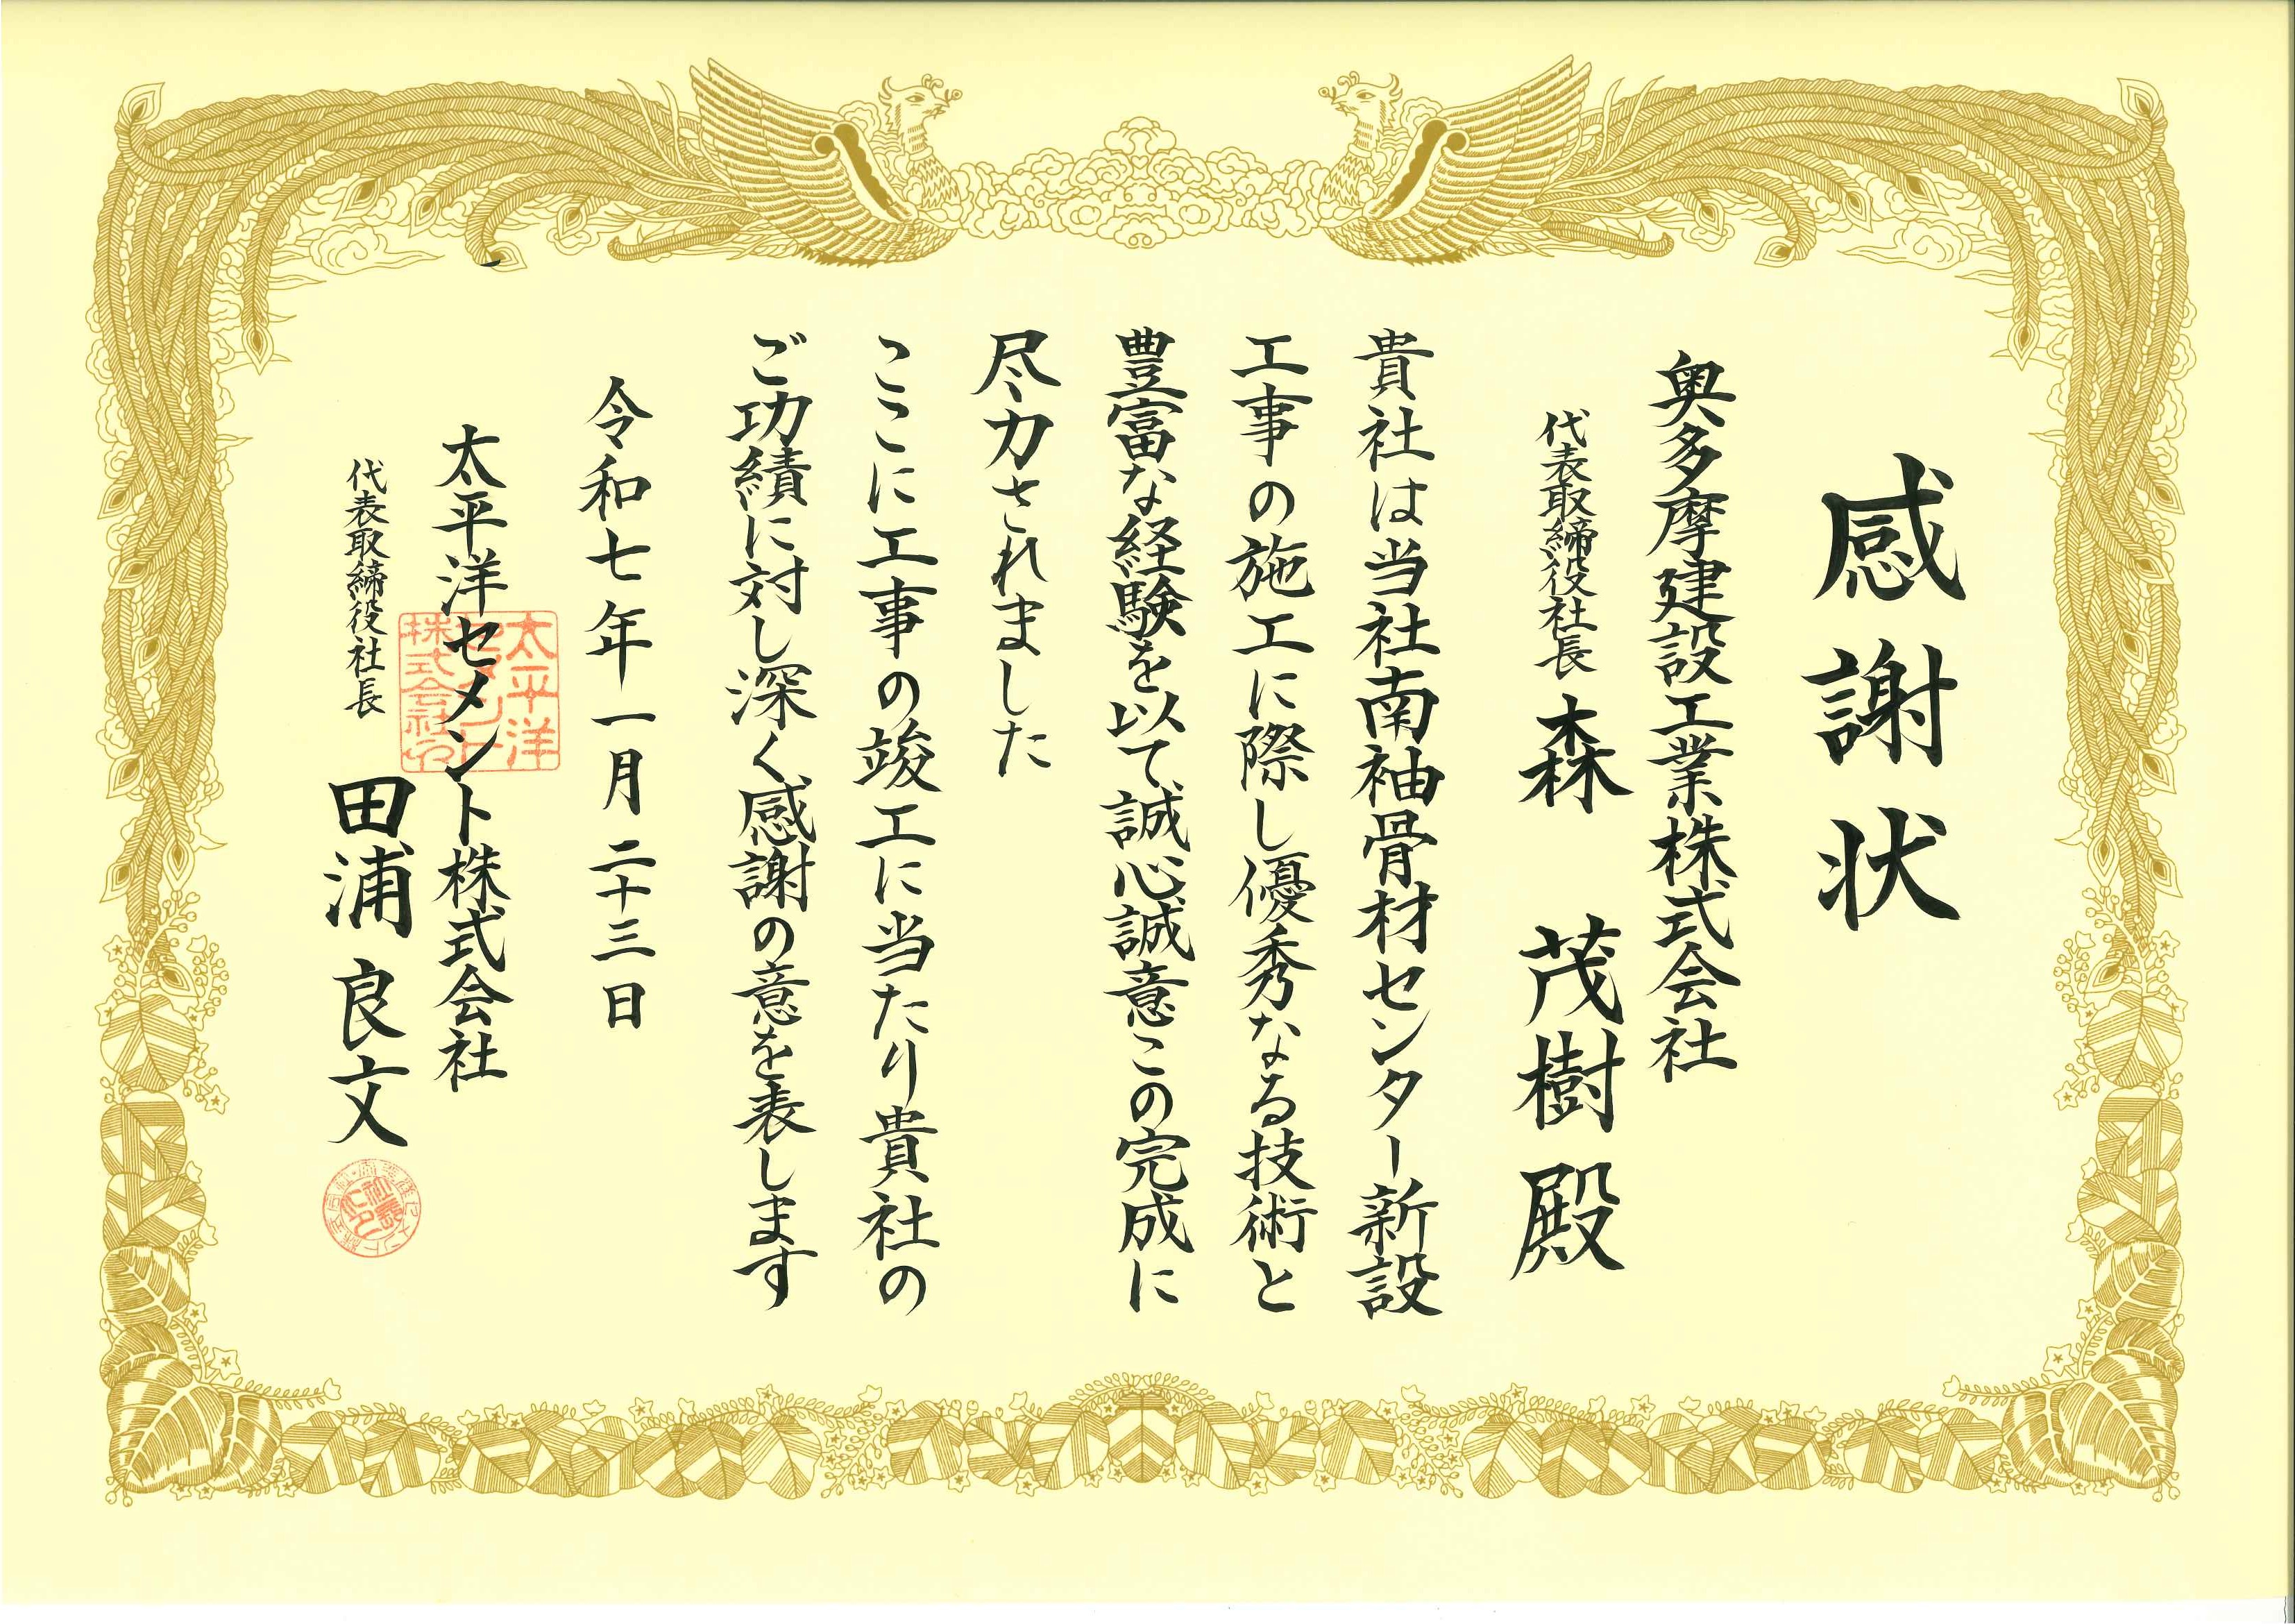 感謝状
奥多摩建設工業株式会社
代表取締役社長 森 茂樹 殿
貴社は当社南袖骨材センター新設
工事の施工に際し優秀なる技術と
豊富な経験を以て誠心誠意この完成に
尽力されました
ここに工事の竣工に当たり貴社の
ご功績に対し深く感謝の意を表します
令和七年一月二十三日
太平洋セメント株式会社
太平洋
セメント
株式会社印
代表取締役社長 田浦良文